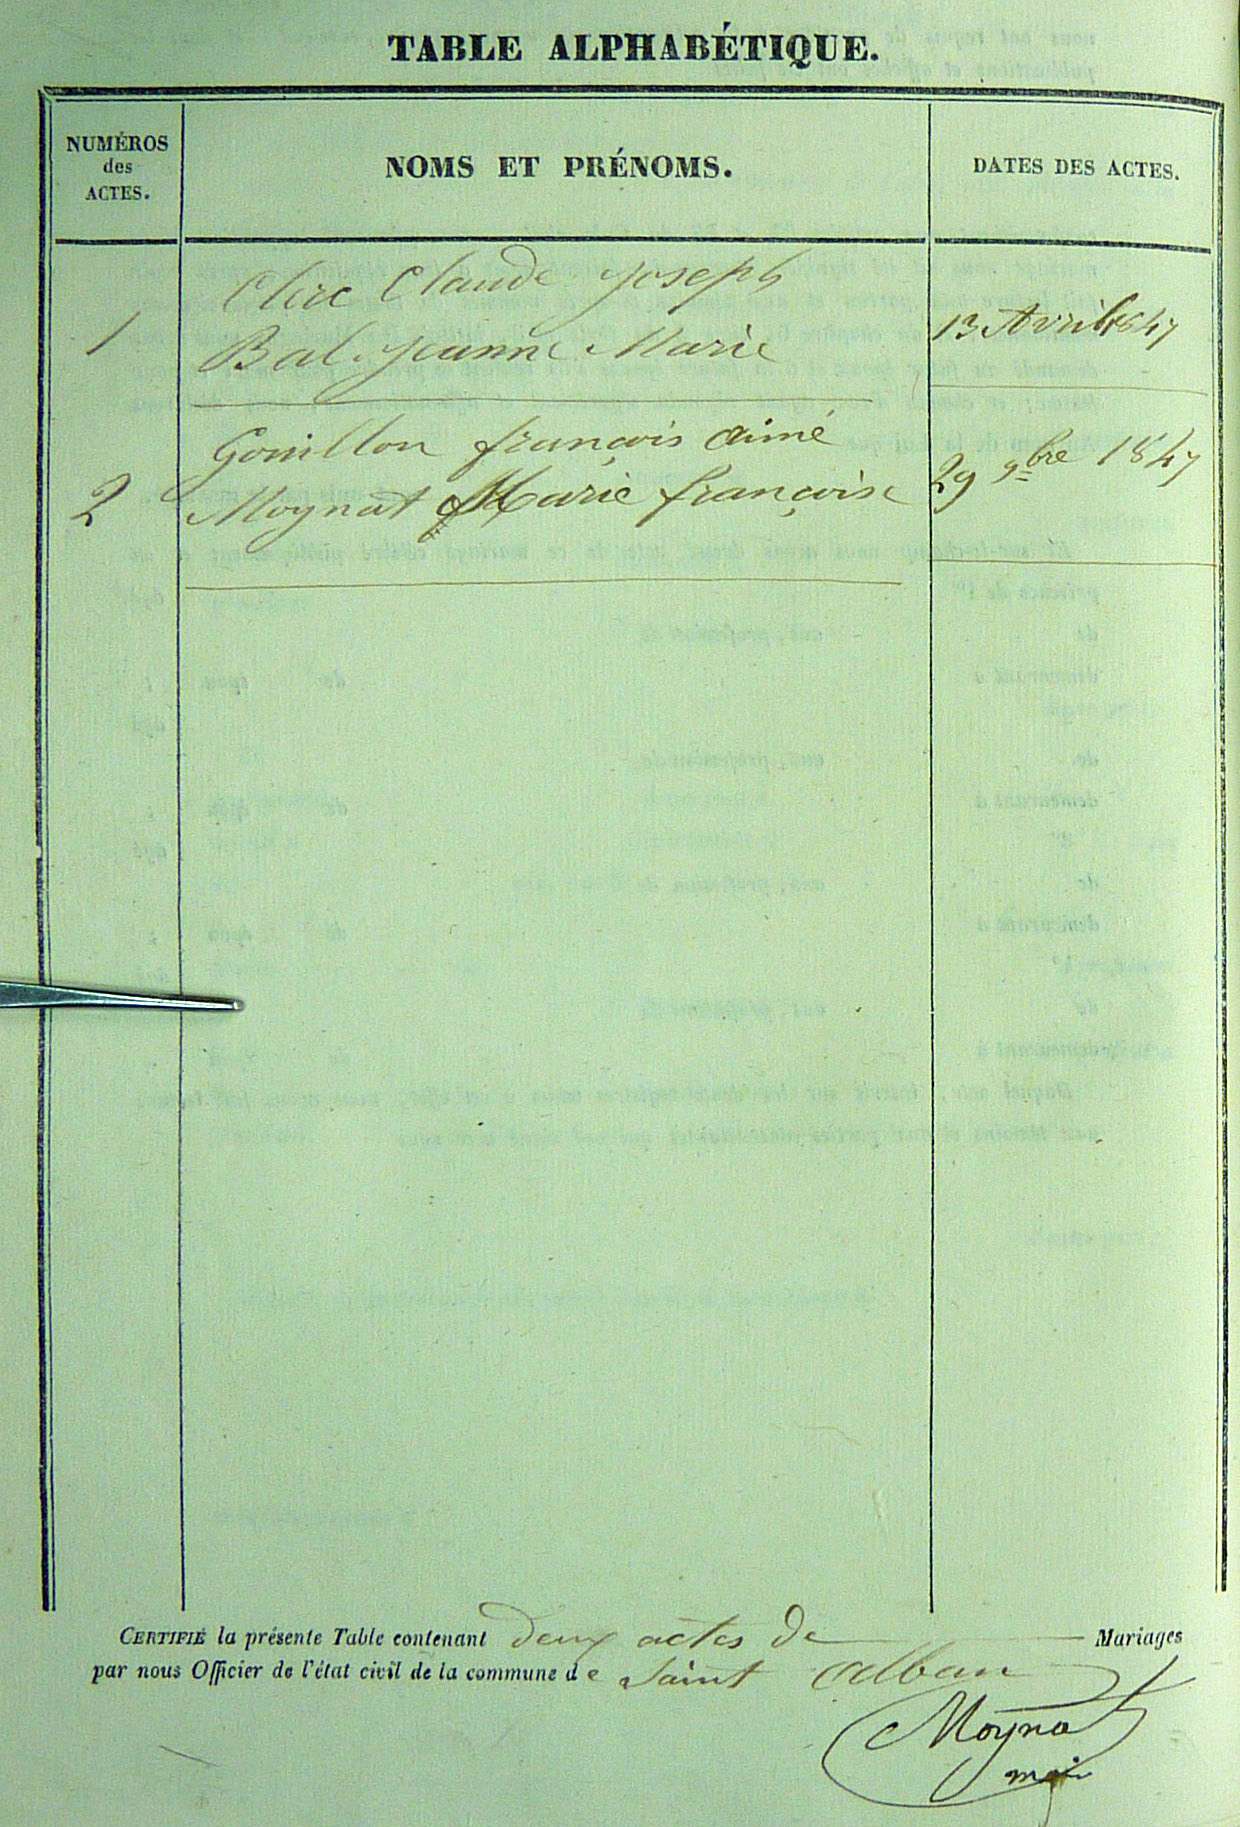 TABLE ALPHABÉTIQUE.
NUMÉROS
des
ACTES.
NOMS ET PRÉNOMS.
DATES DES ACTES.
Clerc Claude Joseph
1
Bal Jeanne Marie
13 Avril 1847
Gouillon françois aimé
2
Moynat Marie françoise
29 9bre 1847
CERTIFIÉ la présente Table contenant deux actes de Mariages
par nous Officier de l'état civil de la commune de Saint Alban
Moynat